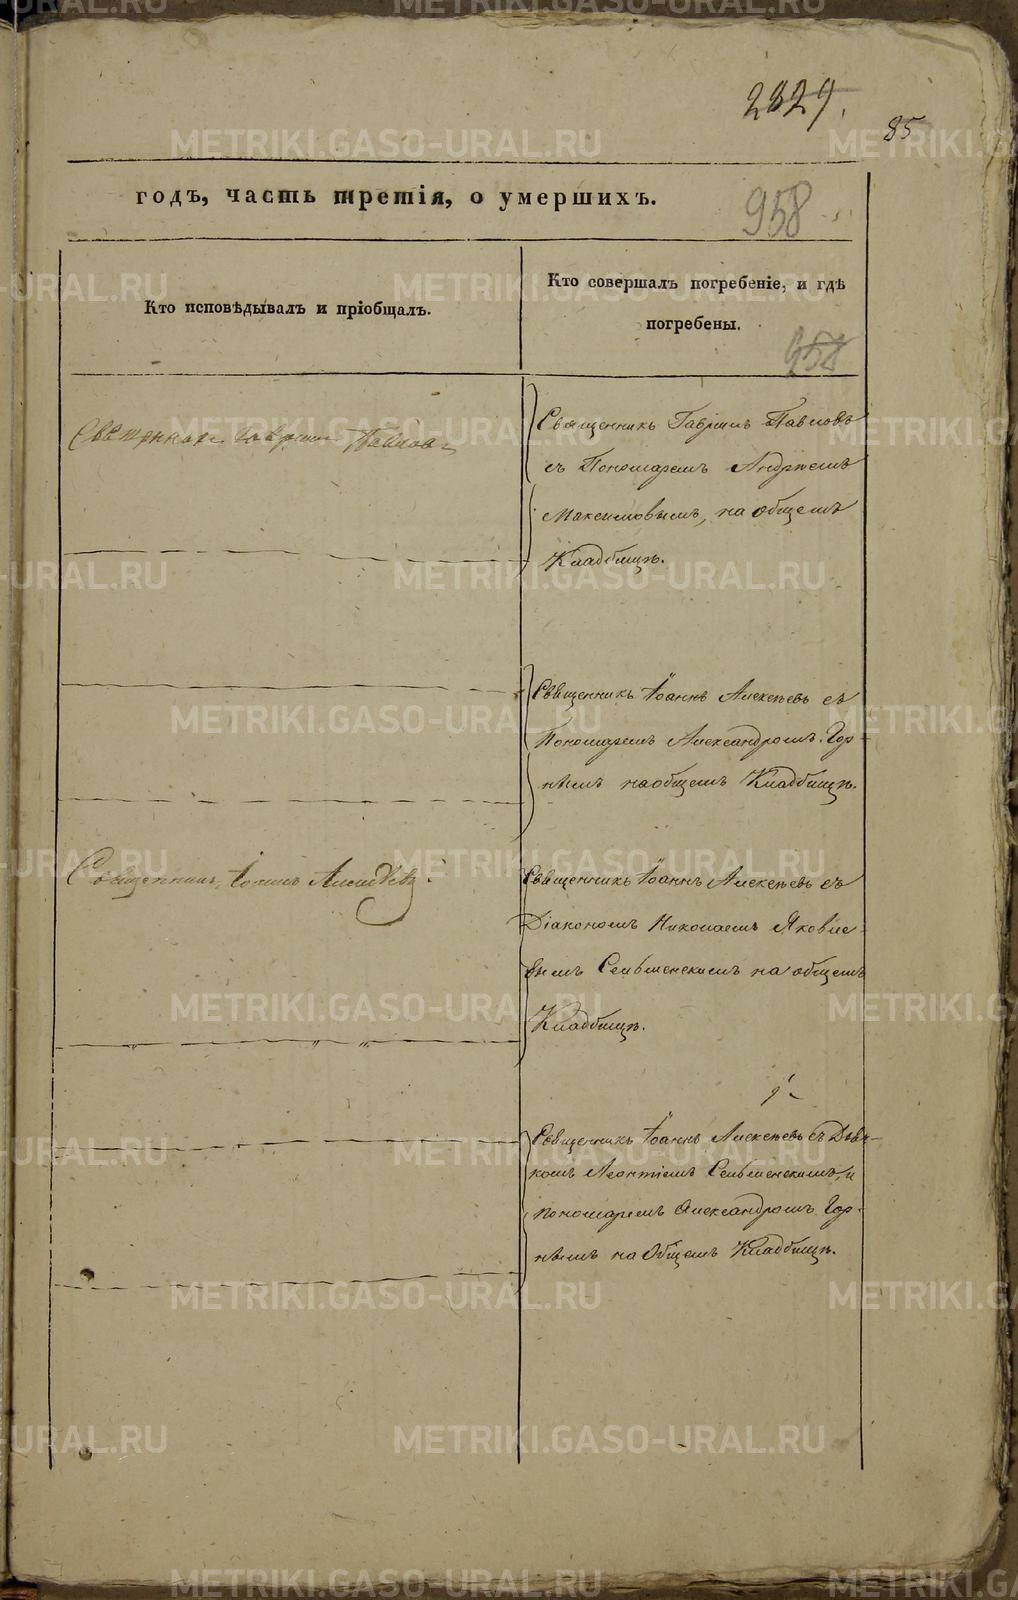 2329.
85
годъ, часть третія, о умершихъ.
958
Кто исповѣдывалъ и пріобщалъ.
Кто совершалъ погребеніе, и гдѣ
погребены.
958
Священникъ Гавріилъ Павловъ
Священникъ Гавріилъ Павловъ
съ Пономаремъ Андреемъ
Максимовымъ, на общемъ
Кладбищѣ.
Священникъ Іоаннъ Алексѣевъ съ
Пономаремъ Александромъ Гор-
нымъ на общемъ Кладбищѣ.
Священникъ Іоаннъ Алексѣевъ.
Священникъ Іоаннъ Алексѣевъ съ
Діакономъ Николаемъ Яковле-
вымъ Сельменскимъ на общемъ
Кладбищѣ.
Священникъ Іоаннъ Алексѣевъ съ Дьяч-
комъ Леонтіемъ Сельменскимъ, и
пономаремъ Александромъ Гор-
нымъ на Общемъ Кладбищѣ.
METRIKI.GASO-URAL.RU